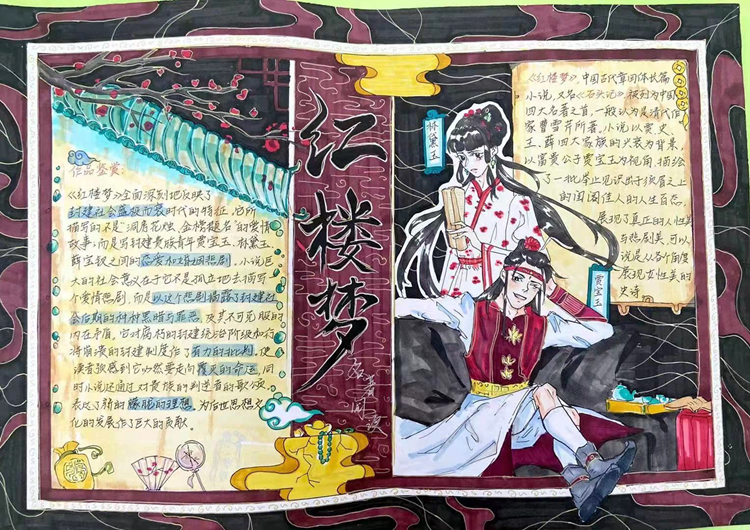 作品鉴赏:
《红楼梦》全面深刻地反映了
封建社会盛极而衰时代的特征。它所
描写的不是"洞房花烛、金榜题名"的爱情
故事,而是写封建贵族青年贾宝玉、林黛玉、
薛宝钗之间的恋爱和婚姻悲剧。小说巨
大的社会意义在于它不是孤立地去描写
个爱情悲剧,而是以这个悲剧揭露了封建社
会后期的种种黑暗与罪恶,及其不可克服的
内在矛盾,它对腐朽的封建统治阶级和行
将崩溃的封建制度作了有力的批判,使
读者预感到它必然要走向覆灭的命运。同
时小说还通过对贵族的判逆者的歌颂,
表达了新的朦胧的理想,为后世思想文
化的发展作了巨大的贡献。
红楼梦
名著阅读
林黛玉
贾宝玉
《红楼梦》,中国古代章回体长篇
小说,又名《石头记》,被列为中国
四大名著之首,一般认为是清代作
家曹雪芹所著。小说以贾、史、
王、薛四大家族的兴衰为背景,
以富贵公子贾宝玉为视角,描绘
了一批举止见识出于须眉之上
的闺阁佳人的人生百态,
展现了真正的人性美
与悲剧美,可以
说是从各个角度
展现女性美的
史诗。